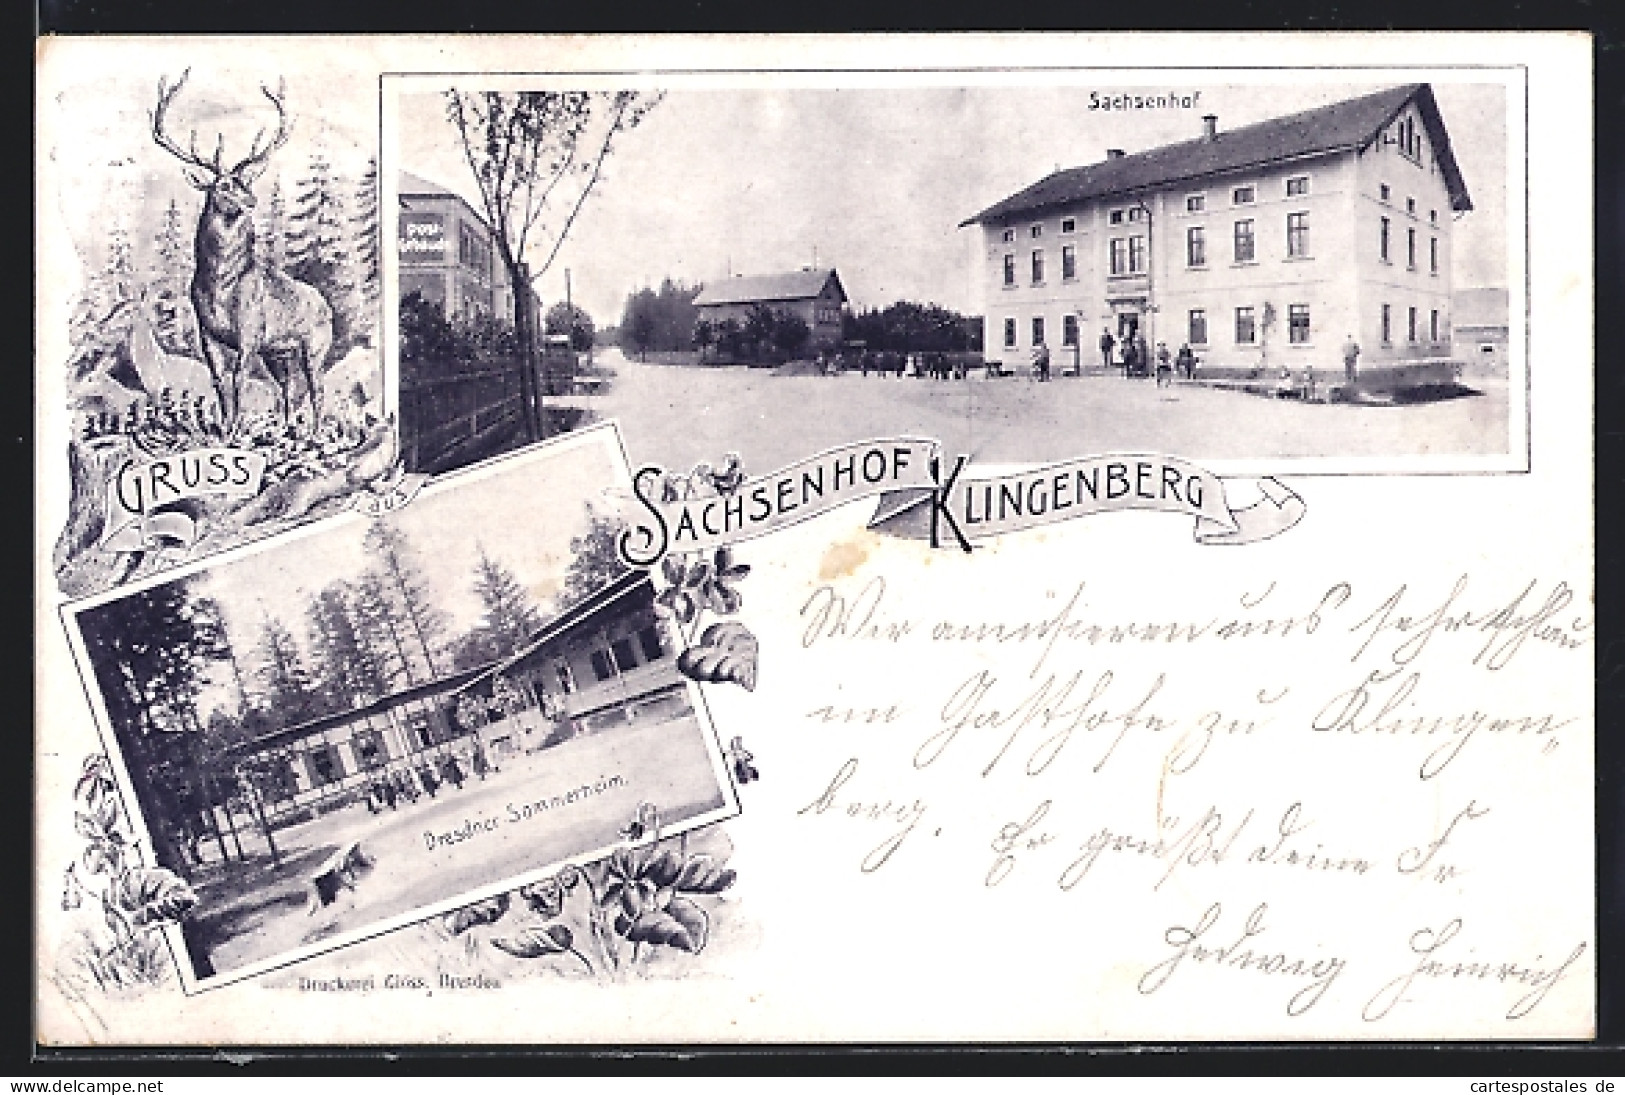 Sachsenhof
Post-
Gebäude
GRUSS
aus
SACHSENHOF KLINGENBERG
Dresdner Sommerheim.
Druckerei Glöss, Dresden
Wir amüsieren uns sehr schlau
im Gasthofe zu Klingen-
berg. Es grüßt deine Fr.
Hedwig Heinrich
delcampe.net
cartespostales de